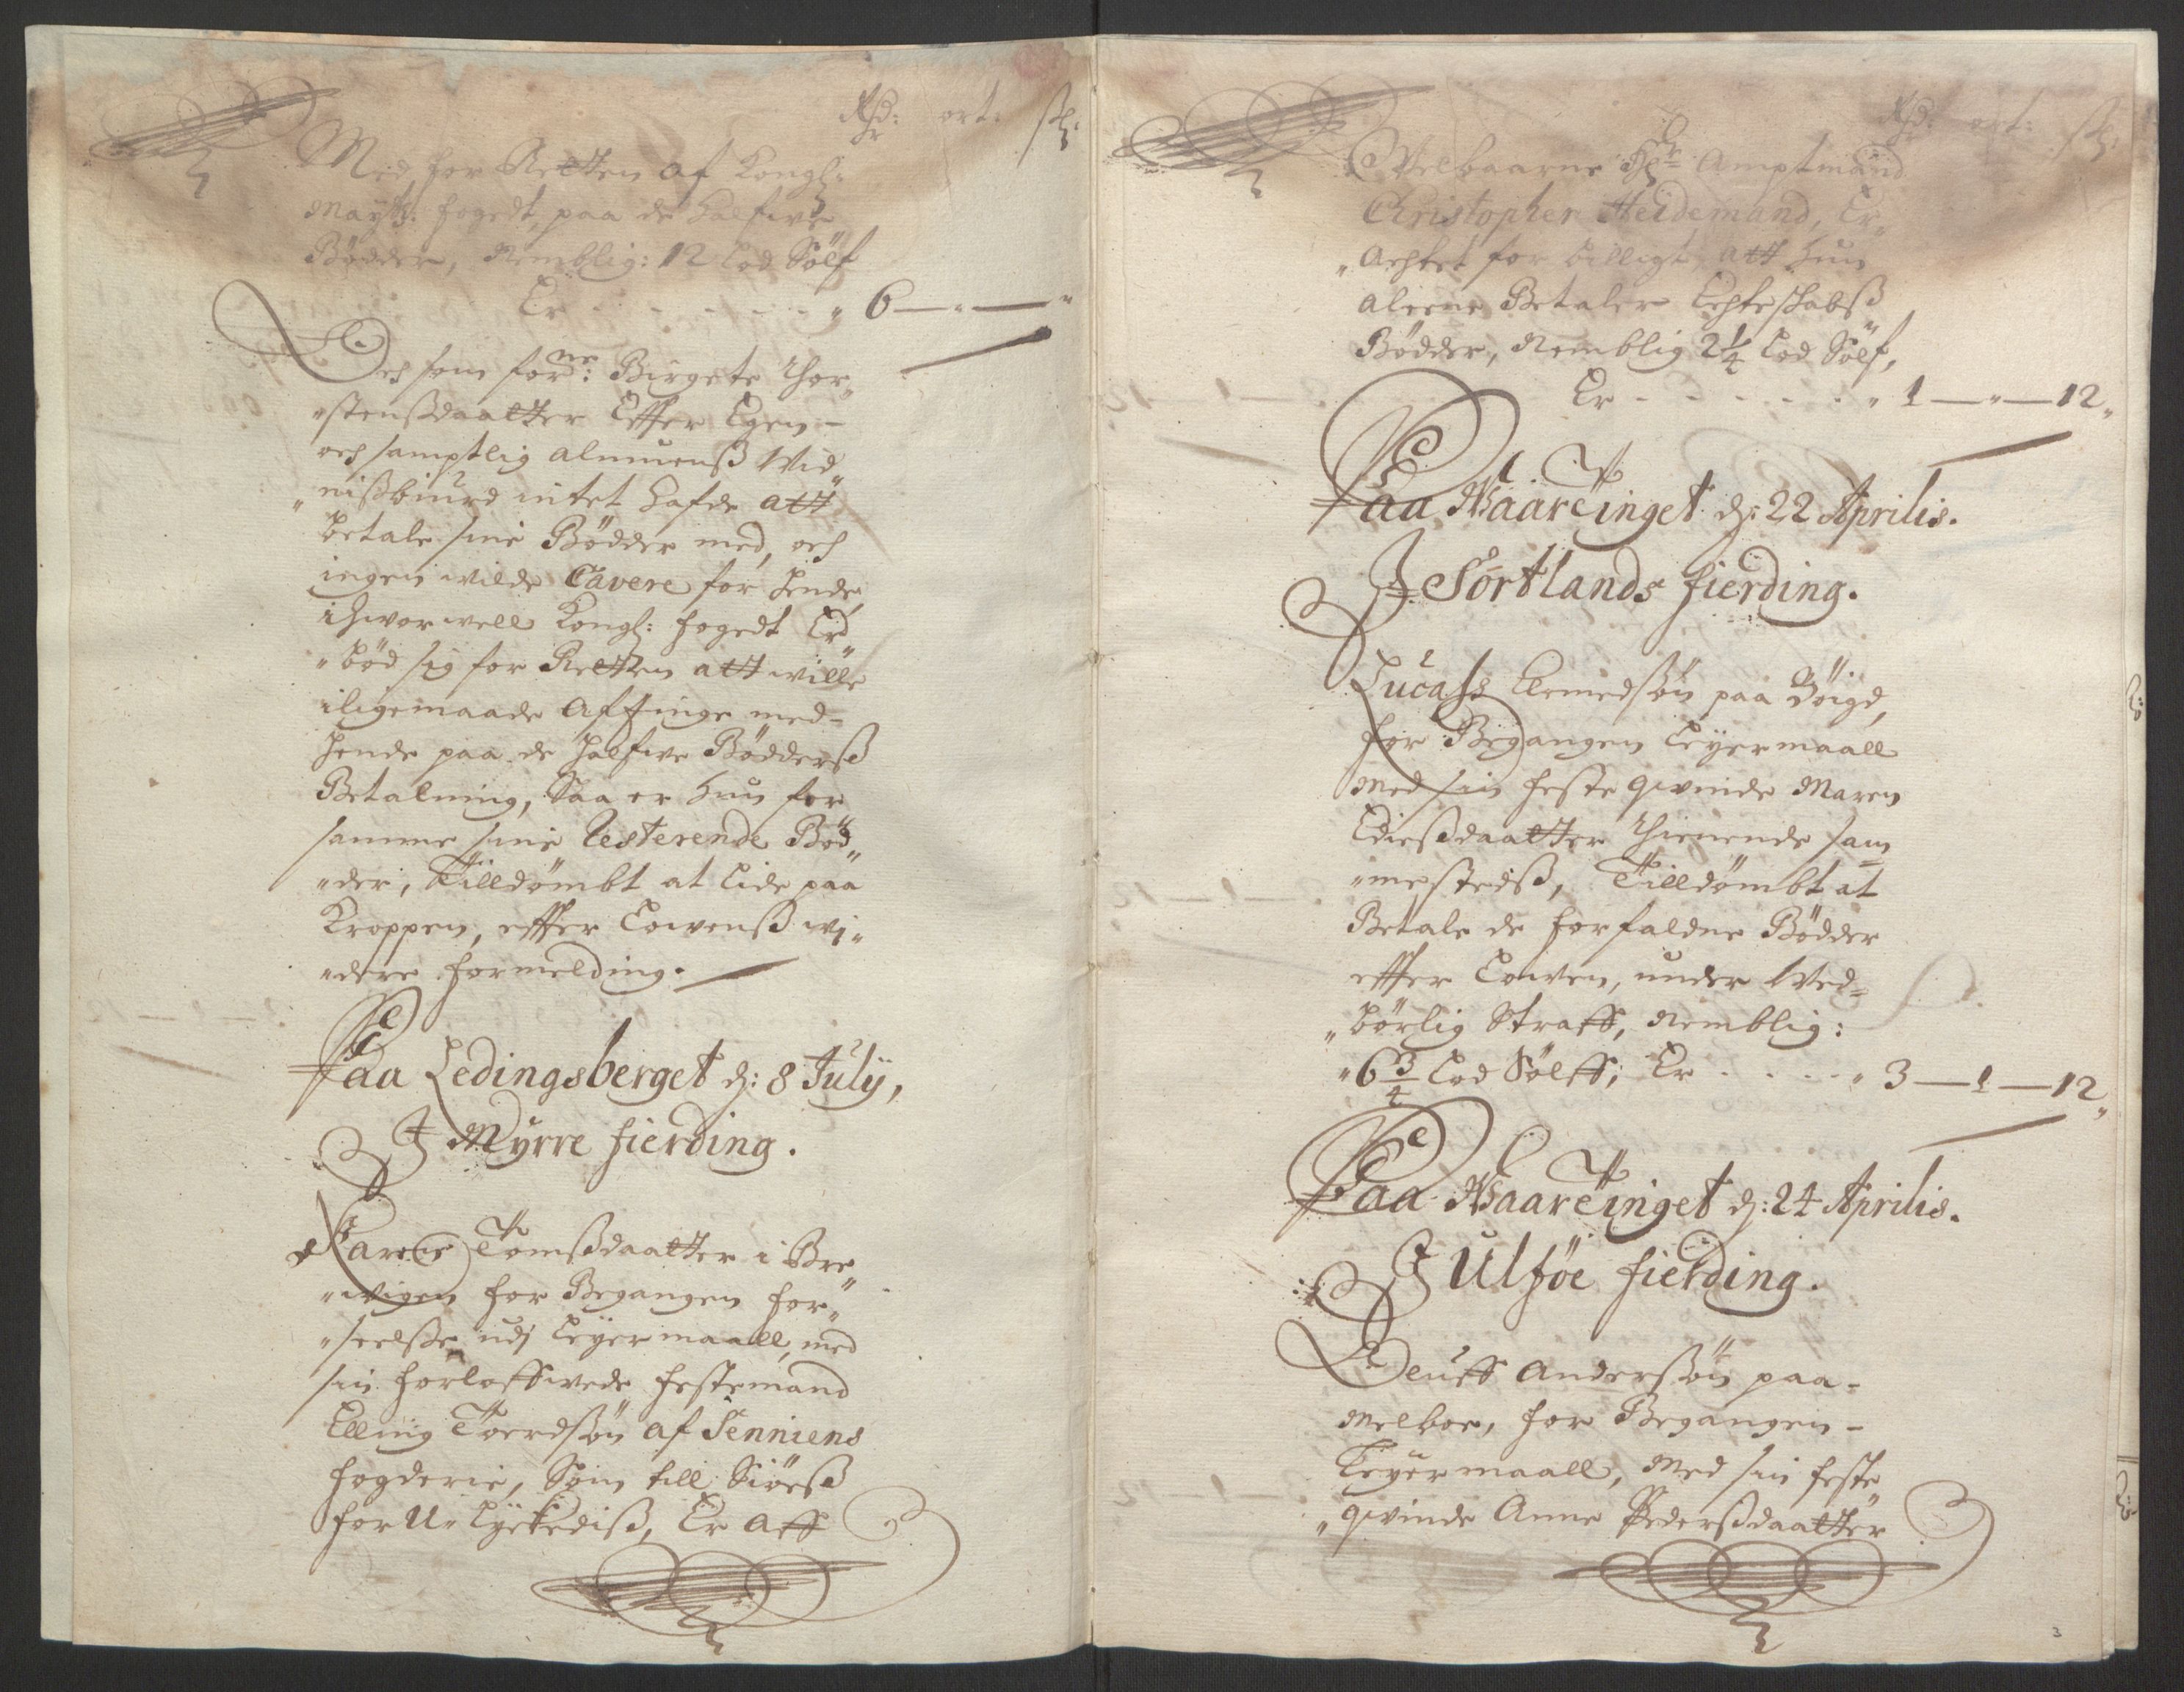 Rsdr: ort: sk:
Med for Retten af Kongl:
Mayts: fogedt, paa de halfwe
Bödder, Nemblig: 12 Lod Sölf
Er - - - - - - " 6 — " — "
Och som forne: Birgete Thor„
„stenßdaatter Effter Egen -
och samptlig almuenß Wid„
„nißbiurd intet hafde att
betale sine Bödder med, och
ingen wilde Cavere for hende,
ihwor well Kongl: fogedt Er„
„böd sig for Retten att wille
iligemaade affinge med-
hende paa de halfwe Bödderß
Betalning, Saa er hun for
samme sine Resterende Böd„
„der, Tilldömbt at lide paa
Kroppen, effter Lowenß wi„
„dere formelding.
Paa Ledingsberget d: 8 Julij,
I Myrre fierding.
Karen Tomßdaatter i Bre„
„wigen for Begangen for„
„seelße udj Leyermaall, med
sin forloffwede festemand
Elling Toerdsön af Senniens
fogderie, Som till Siöeß
for U„lyckediß, Er aff
Rsdr: ort: sk:
Welbaarne Hr: Amptmand
Christopher Heidemand, Er„
„achtet for billigt att hun
aleene Betaler Echteskabß
Bödder, Nemblig 2¼ Lod Sölf,
Er - - - - - " 1 — " — 12„
Paa Waartinget d: 22 Aprilis.
I Sortlands fierding.
Lucass Clemedsön paa Böigd,
for Begangen Leyermaall
med sin feste qwinde Maren
Ediesßdaatter thienende sam
„mestedß, Tilldömbt at
Betale de forfaldne Bödder
effter Lowen, under Wed=
„börlig Straff, Nemblig:
„6¾ Lod Sölff; Er - - - - " 3 — 1 — 12„
Paa Waartinget d: 24 Aprilis.
I Ulföe fierding.
Oeluff Anderßön paa-
Melboe, for Begangen-
Leyermaall, Med sin feste„
„qwinde Anne Pederßdaatter
3